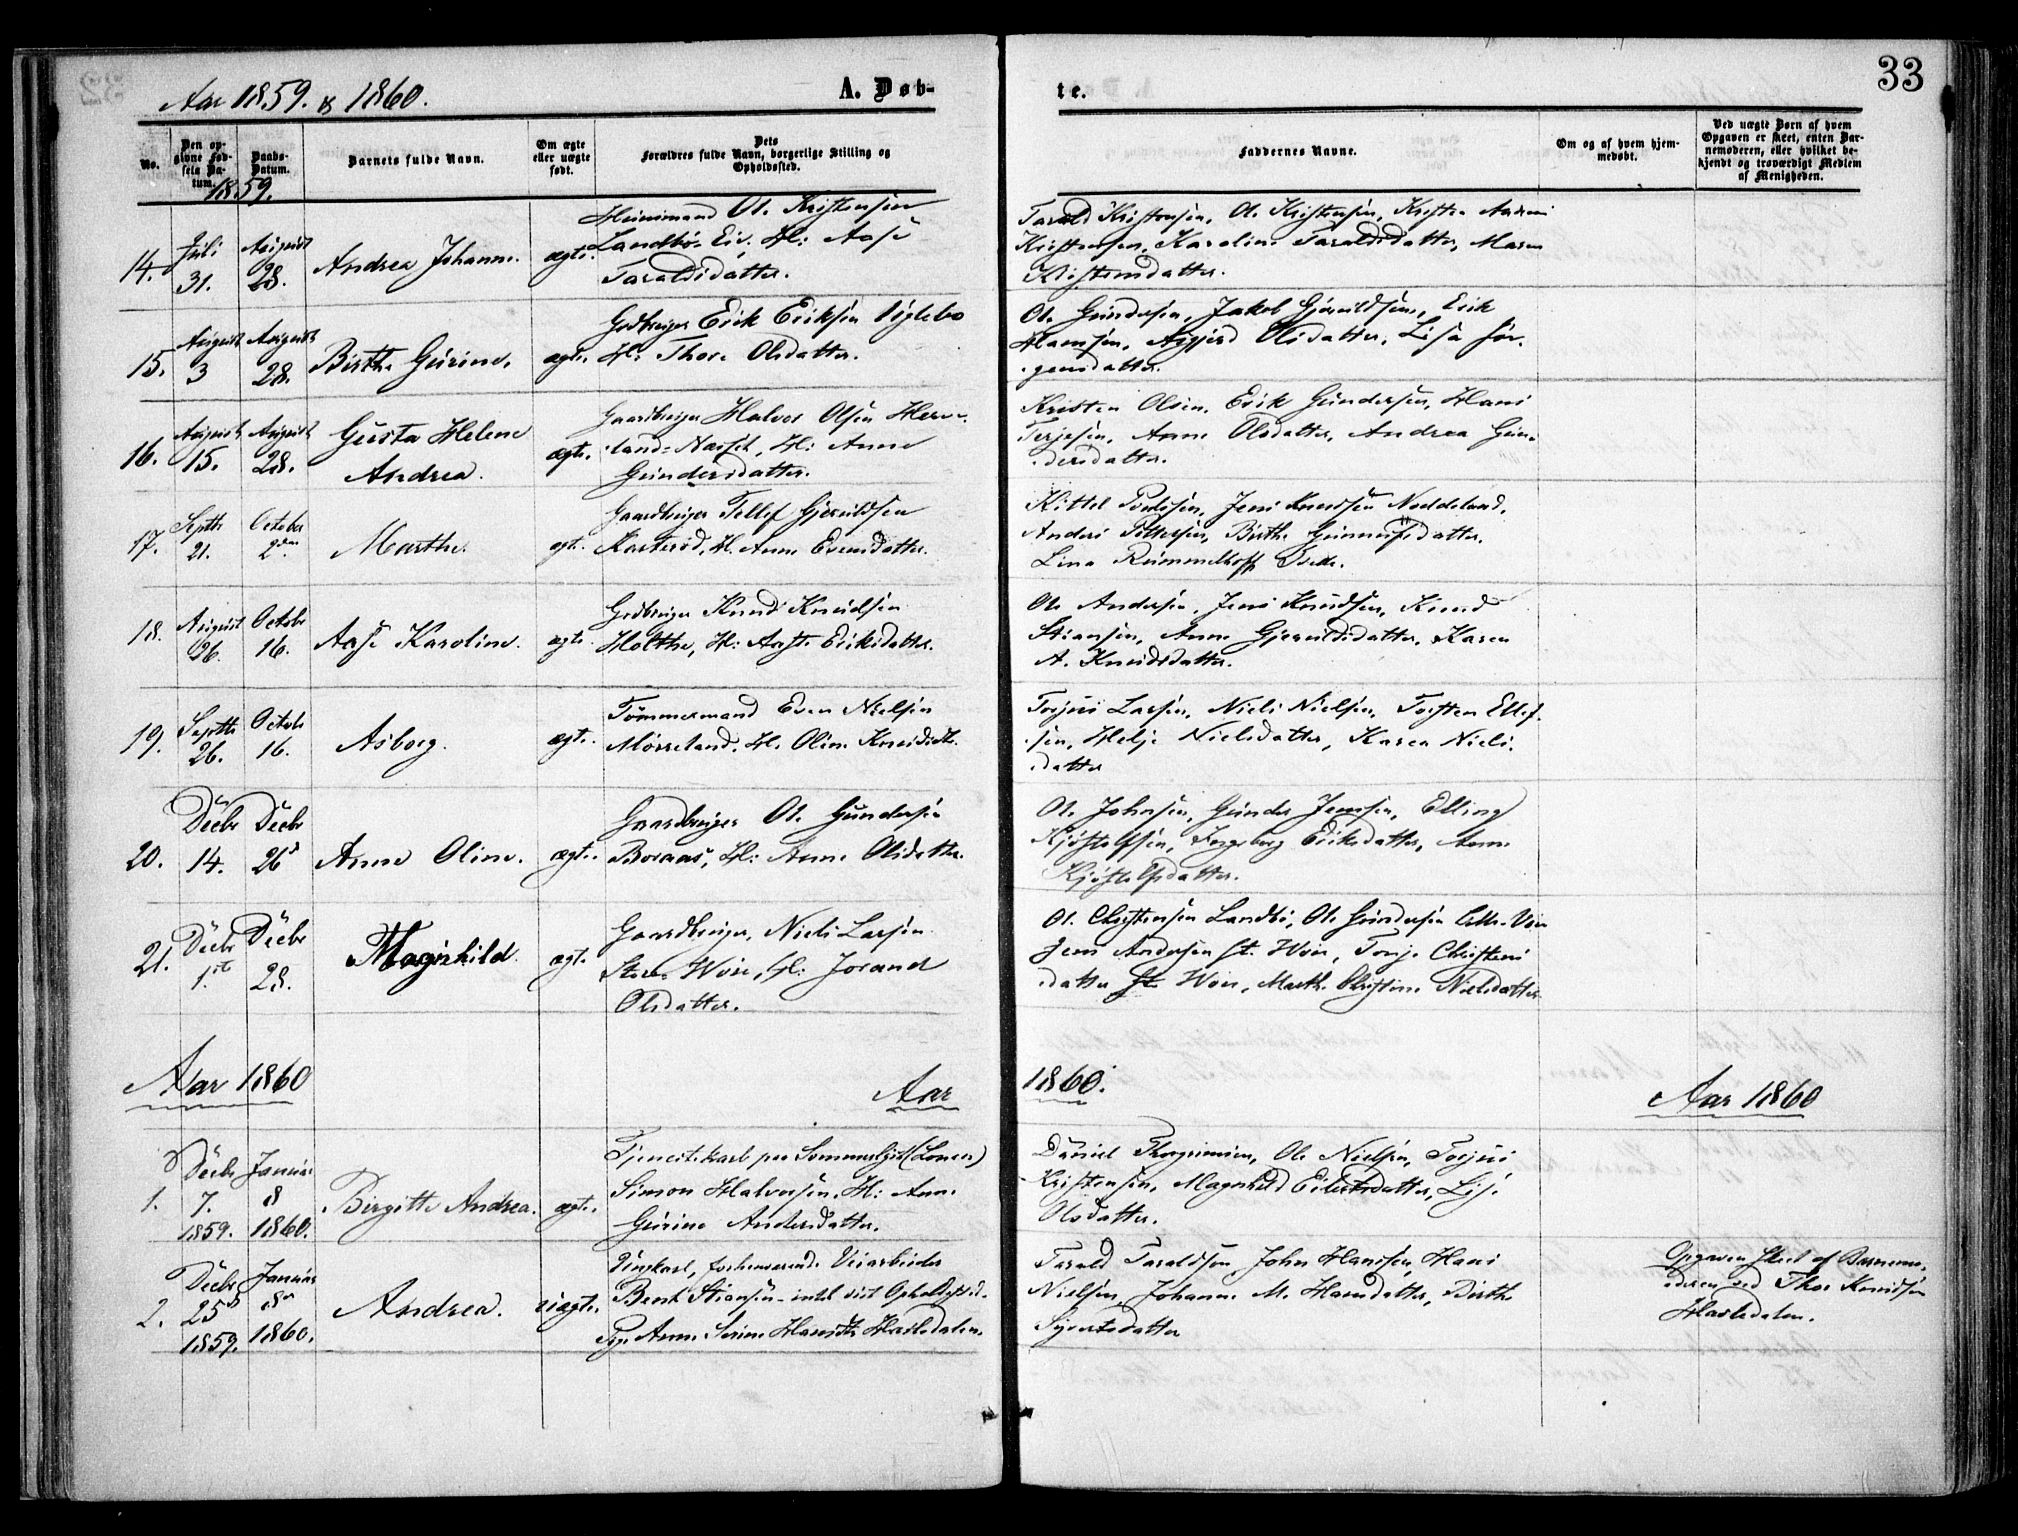 Aar 1859. & 1860.
A. Døb-
te.
33
No.
Den op-
givne Fød-
sels Da-
tum.
Daabs-
Datum.
Barnets fulde Navn.
Om ægte
eller uægte
født.
Dets
Forældres fulde Navn, borgerlige Stilling og
Opholdssted.
Faddernes Navne.
Om og af hvem hjem-
medøbt.
Ved uægte Børn af hvem
Opgaven er skeet, enten Bar-
nemoderen, eller hvilket be-
kjendt og troværdigt Medlem
af Menigheden.
1859.
14.
Juli
31.
August
28.
Andrea Johanne.
ægte.
Ole Kristensen
Landbø Eie. H: Aase
Taraldsdatter.
Tarald Kristensen, Ole Kristensen, Kristen
Kristensen, Karoline Taraldsdatter, Maren
Kristensdatter.
15.
August
3
August
28.
Birthe Gurine.
ægte.
Grdbruger Erik Eriksen Uglebo
H: Thore Olsdatter.
Ole Gundersen, Jakob Gjeruldsen, Erik
Hansen, Olsdatter, Lisa Jør-
gensdatter.
16.
August
15.
August
28.
Gusta Helene
Andrea.
ægte.
Gaardbruger Halvor Olsen
H: Anne
Gundersdatter.
Kristen Olsen, Erik Gundersen, Hans
Terjesen, Anne Olsdatter, Andrea Gun-
dersdatter.
17.
Septbr
21.
October
2den
Marthe.
ægte.
Gaardbruger Tellef Gjeruldsen
H. Anne Evensdatter.
Kittel Jens Knudsen Noddeland,
Anders Birthe
Line Rummelhoff
18.
August
26.
Octobr
16.
Aase Karoline.
ægte.
Grdbruger Knud Knudsen
Holthe, H: Eriksdatter.
Ole Andersen, Jens Knudsen, Knud
Stiansen, Anne Gjeruldsdatter, Karen
A. Knudsdatter.
19.
Septbr
26.
Octobr
16.
Asborg.
ægte.
Tømmermand Even Nielsen
Mørreland, H. Oline Knudsdt.
Torjus Larsen, Niels Nielsen, Torsten Ellef-
sen, Helje Nielsdatter, Karen Niels-
datter
20.
Decbr
14.
Decbr
26
Anne Oline.
ægte.
Gaardbruger Ole Gundersen
Boraas, H: Anne Olsdatter.
Ole Johnsen, Gunder Jensen, Elling
Kjøstelfsen, Ingeborg Eriksdatter, Anne
Kjøstelfsdatter.
21.
Decbr
1.
Decbr
28.
Magnhild.
ægte.
Gaardbruger, Niels Larsen
Store Woie, H: Jorand
Olsdatter.
Ole Christensen Landbø, Ole Gundersen
Jens Andersen St. Woie, Torje Christens
datter St. Woie, Marthe Christine Nielsdatter
Aar 1860
Aar
1860.
Aar 1860
1.
Decbr
7.
1859.
Januar
8
1860.
Birgitte Andrea.
ægte.
Tjenestekarl paa
Simon Halvorsen, H: Anne
Gurine Andersdatter.
Daniel Thorgrimsen, Ole Nielsen, Torjus
Kristensen, Magnhild Eilertsdatter, Lise
Olsdatter.
2.
Decbr
25
1859.
Januar
8
1860.
Andrea.
uægte.
Ungkarl, forhenværende Veiarbeider
Bent Stiansen - intet vist Opholdssted.
Pige Anne Serine Hansdtr Hasledalen.
Tarald Taraldsen, John Hansen, Hans
Nielsen, Johanne M. Hansdatter, Birthe
Syvertsdatter
Opgaven skeet af Barnemo-
deren ved Thor Knudsen
Hasledalen.